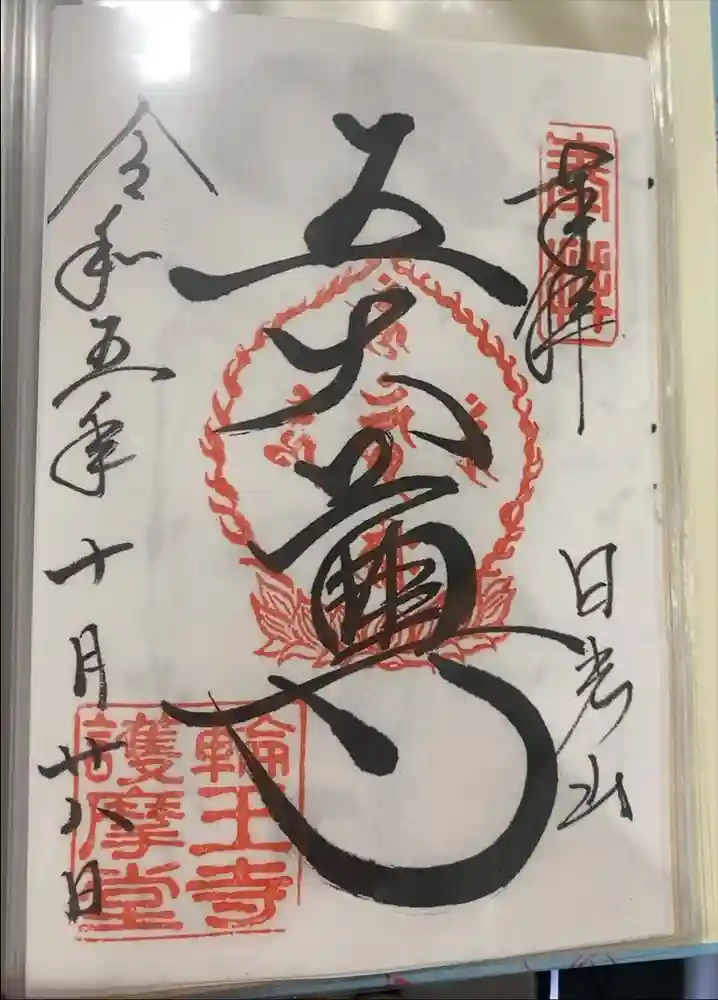 奉拝
奉拝
日光山
五大尊
輪王寺
護摩堂
令和五年十月廿八日